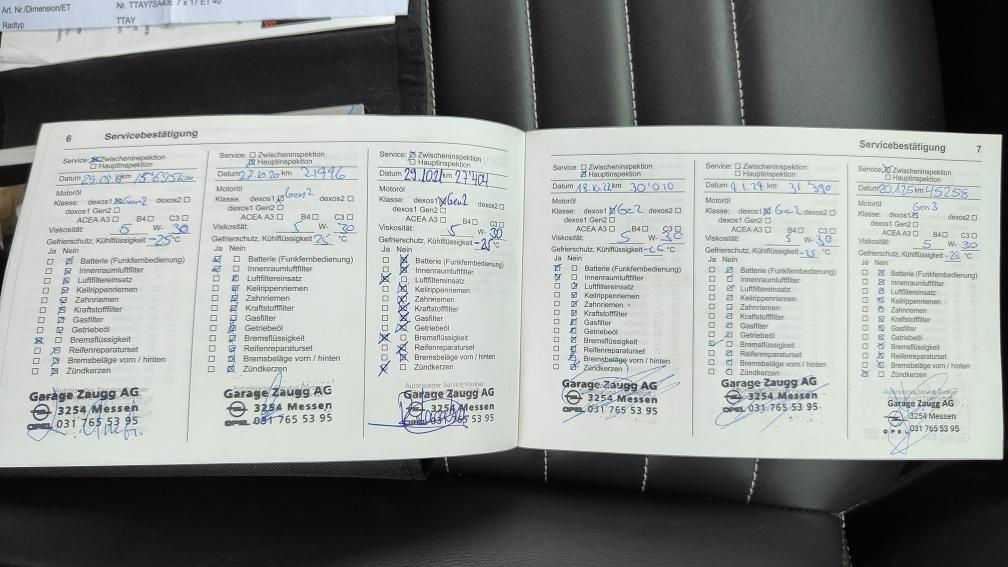 Art. Nr./Dimension/ET Nr. TTAY7SA40E 7 x 17 ET 40
Radtyp TTAY
6 Servicebestätigung
Service: ☒ Zwischeninspektion
☐ Hauptinspektion
Datum km 15'695 km
Motoröl
Klasse: dexos1 ☒ Gen2 dexos2 ☐
dexos1 Gen2 ☐
ACEA A3 ☐ B4 ☐ C3 ☐
Viskosität: 5 W- 30
Gefrierschutz, Kühlflüssigkeit -25 °C
Ja Nein
Batterie (Funkfernbedienung)
Innenraumluftfilter
Luftfiltereinsatz
Keilrippenriemen
Zahnriemen
Kraftstofffilter
Gasfilter
Getriebeöl
Bremsflüssigkeit
Reifenreparaturset
Bremsbeläge vorn / hinten
Zündkerzen
Garage Zaugg AG
3254 Messen
OPEL 031 765 53 95
Service: ☐ Zwischeninspektion
☒ Hauptinspektion
Datum 27.10.20 km 21996
Motoröl
Klasse: dexos1 ☒ Gen2 dexos2 ☐
dexos1 Gen2 ☐
ACEA A3 ☐ B4 ☐ C3 ☐
Viskosität: 5 W- 30
Gefrierschutz, Kühlflüssigkeit 25 °C
Ja Nein
Batterie (Funkfernbedienung)
Innenraumluftfilter
Luftfiltereinsatz
Keilrippenriemen
Zahnriemen
Kraftstofffilter
Gasfilter
Getriebeöl
Bremsflüssigkeit
Reifenreparaturset
Bremsbeläge vorn / hinten
Zündkerzen
Garage Zaugg AG
3254 Messen
OPEL 031 765 53 95
Service: ☒ Zwischeninspektion
☐ Hauptinspektion
Datum 29.1021 km 27'404
Motoröl
Klasse: dexos1 ☒ Gen2 dexos2 ☐
dexos1 Gen2 ☐
ACEA A3 ☐ B4 ☐ C3 ☐
Viskosität: 5 W- 30
Gefrierschutz, Kühlflüssigkeit -25 °C
Ja Nein
Batterie (Funkfernbedienung)
Innenraumluftfilter
Luftfiltereinsatz
Keilrippenriemen
Zahnriemen
Kraftstofffilter
Gasfilter
Getriebeöl
Bremsflüssigkeit
Reifenreparaturset
Bremsbeläge vorn / hinten
Zündkerzen
Autorisierter Service-Partner
Garage Zaugg AG
3254 Messen
OPEL 031 765 53 95
Servicebestätigung 7
Service: ☐ Zwischeninspektion
☒ Hauptinspektion
Datum 18.10.22 km 30'010
Motoröl
Klasse: dexos1 ☒ Ge2 dexos2 ☐
dexos1 Gen2 ☐
ACEA A3 ☐ B4 ☐ C3 ☐
Viskosität: 5 W- 30
Gefrierschutz, Kühlflüssigkeit -25 °C
Ja Nein
Batterie (Funkfernbedienung)
Innenraumluftfilter
Luftfiltereinsatz
Keilrippenriemen
Zahnriemen
Kraftstofffilter
Gasfilter
Getriebeöl
Bremsflüssigkeit
Reifenreparaturset
Bremsbeläge vorn / hinten
Zündkerzen
Garage Zaugg AG
3254 Messen
OPEL 031 765 53 95
Service: ☐ Zwischeninspektion
☐ Hauptinspektion
Datum km 31'390
Motoröl
Klasse: dexos1 ☒ Ge2 dexos2 ☐
dexos1 Gen2 ☐
ACEA A3 ☐ B4 ☐ C3 ☐
Viskosität: 5 W- 30
Gefrierschutz, Kühlflüssigkeit °C
Ja Nein
Batterie (Funkfernbedienung)
Innenraumluftfilter
Luftfiltereinsatz
Keilrippenriemen
Zahnriemen
Kraftstofffilter
Gasfilter
Getriebeöl
Bremsflüssigkeit
Reifenreparaturset
Bremsbeläge vorn / hinten
Zündkerzen
Garage Zaugg AG
3254 Messen
OPEL 031 765 53 95
Service: ☒ Zwischeninspektion
☐ Hauptinspektion
Datum 20.1.25 km 45258
Motoröl Gen 3
Klasse: dexos1 ☒ dexos2 ☐
dexos1 Gen2 ☐
ACEA A3 ☐ B4 ☐ C3 ☐
Viskosität: 5 W- 30
Gefrierschutz, Kühlflüssigkeit °C
Ja Nein
Batterie (Funkfernbedienung)
Innenraumluftfilter
Luftfiltereinsatz
Keilrippenriemen
Zahnriemen
Kraftstofffilter
Gasfilter
Getriebeöl
Bremsflüssigkeit
Reifenreparaturset
Bremsbeläge vorn / hinten
Zündkerzen
Garage Zaugg AG
3254 Messen
OPEL 031 765 53 95